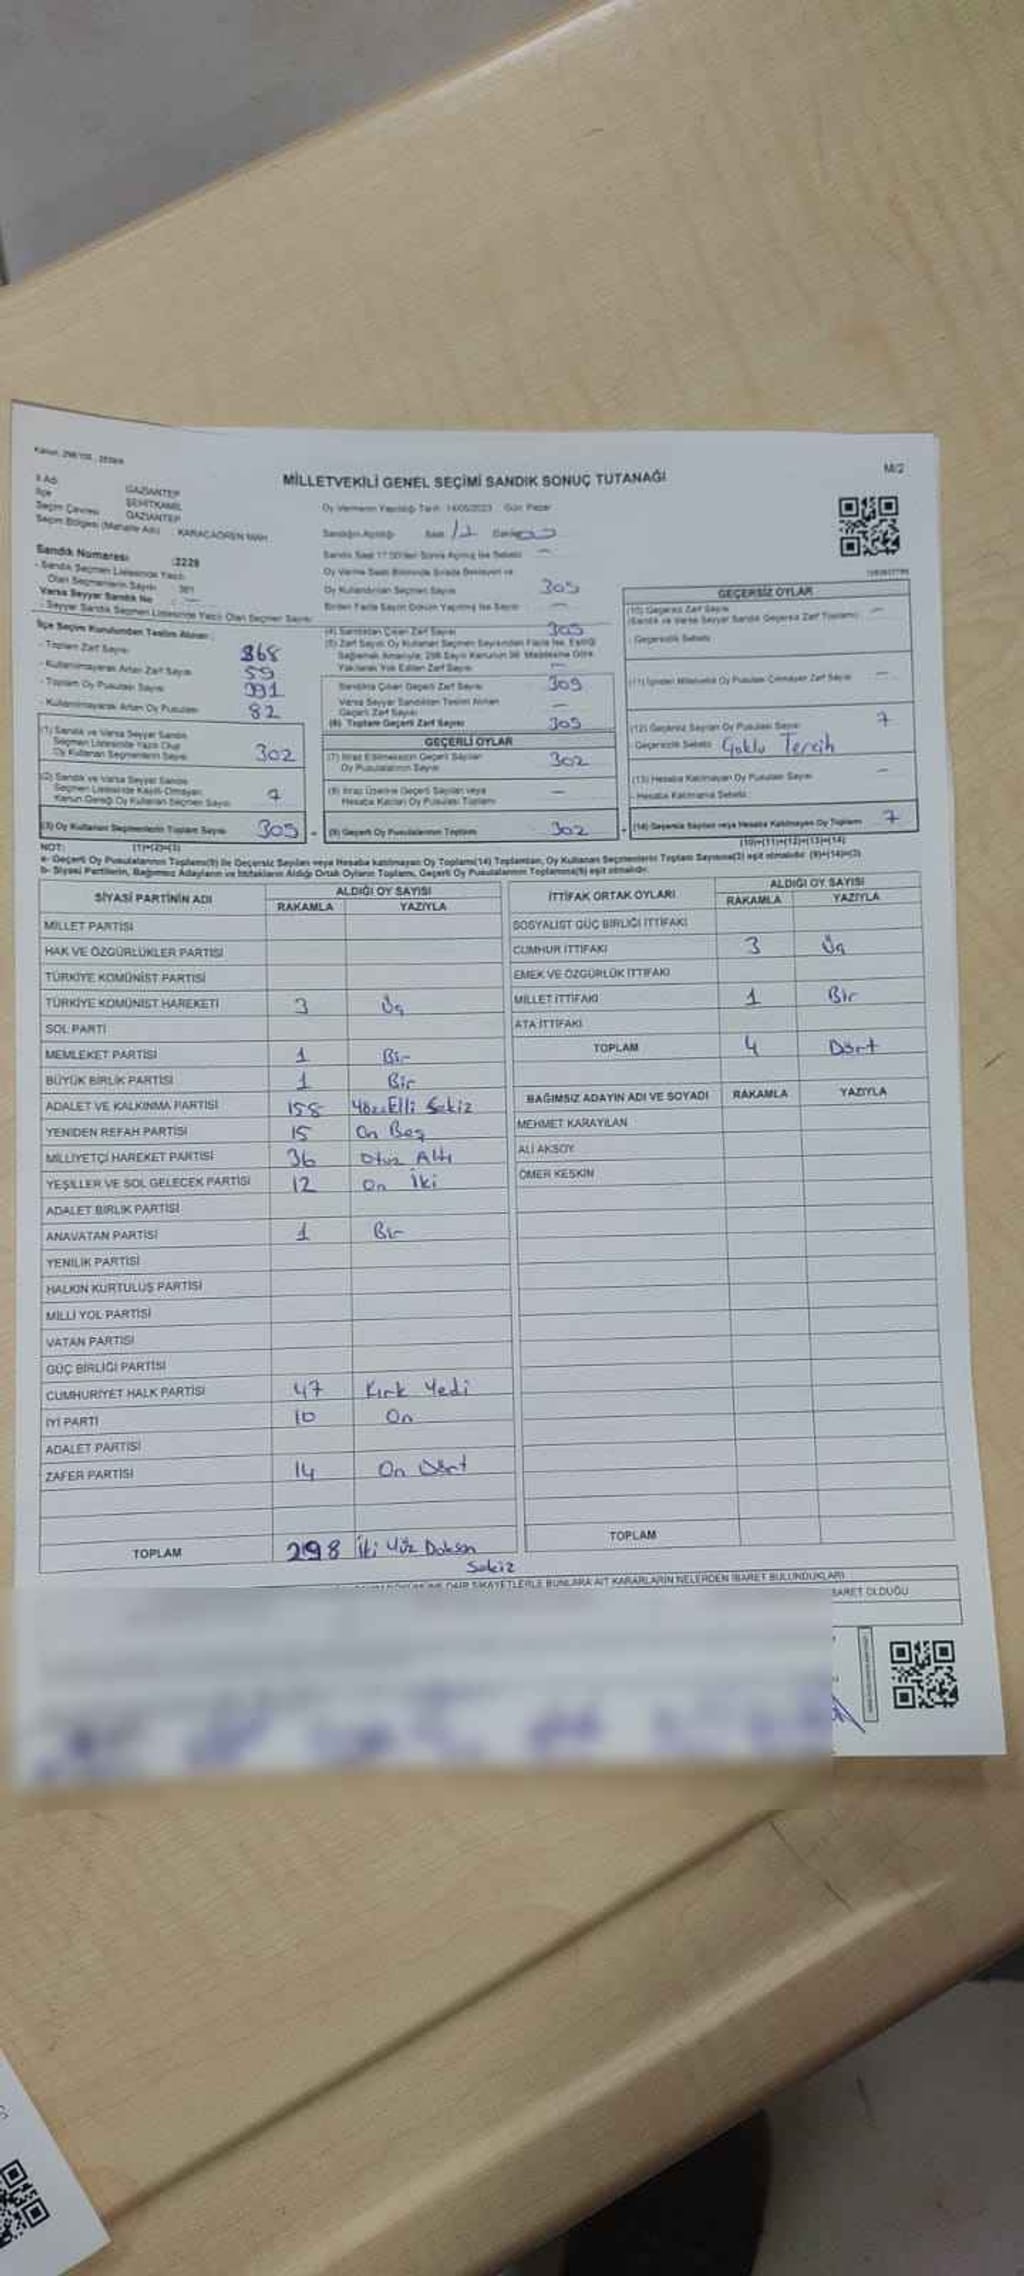 M/2
MİLLETVEKİLİ GENEL SEÇİMİ SANDIK SONUÇ TUTANAĞI
İl Adı GAZİANTEP
İlçe ŞEHİTKAMİL
Seçim Çevresi GAZİANTEP
Seçim Bölgesi (Mahalle Adı) : KARACAÖREN MAH.
Oy Vermenin Yapıldığı Tarih 14/05/2023 Gün Pazar
Sandık Numarası :2229
Oy Kullandırılan Seçmen Sayısı 305
İlçe Seçim Kurulundan Teslim Alınan :
- Toplam Zarf Sayısı 368
- Kullanılmayarak Artan Zarf Sayısı 59
- Toplam Oy Pusulası Sayısı 391
- Kullanılmayarak Artan Oy Pusulası 82
(1) Sandık ve Varsa Seyyar Sandık Seçmen Listesinde Yazılı Olup Oy Kullanan Seçmenlerin Sayısı 302
(2) Sandık ve Varsa Seyyar Sandık Seçmen Listesinde Kayıtlı Olmayan, Kanun Gereği Oy Kullanan Seçmen Sayısı 7
(3) Oy Kullanan Seçmenlerin Toplam Sayısı 309
(4) Sandıktan Çıkan Zarf Sayısı 305
Sandıkta Çıkan Geçerli Zarf Sayısı 309
(6) Toplam Geçerli Zarf Sayısı 309
GEÇERLİ OYLAR
(7) İtiraz Edilmeksizin Geçerli Sayılan Oy Pusulalarının Sayısı 302
(8) İtiraz Üzerine Geçerli Sayılan veya Hesaba Katılan Oy Pusulası Toplamı —
(9) Geçerli Oy Pusulalarının Toplamı 302
GEÇERSİZ OYLAR
(10) Geçersiz Zarf Sayısı —
(12) Geçersiz Sayılan Oy Pusulası Sayısı 7
Geçersizlik Sebebi : Çoklu Tercih
(13) Hesaba Katılmayan Oy Pusulası Sayısı —
- Hesaba Katılmama Sebebi :
(14) Geçersiz Sayılan veya Hesaba Katılmayan Oy Toplamı 7
NOT: (1)+(2)=(3) (10)+(11)+(12)+(13)=(14)
a- Geçerli Oy Pusulalarının Toplamı(9) ile Geçersiz Sayılan veya Hesaba katılmayan Oy Toplamı(14) Toplamları, Oy Kullanan Seçmenlerin Toplam Sayısına(3) eşit olmalıdır. (9)+(14)=(3)
b- Siyasi Partilerin, Bağımsız Adayların ve İttifakların Aldığı Ortak Oyların Toplamı, Geçerli Oy Pusulalarının Toplamına(9) eşit olmalıdır.
SİYASİ PARTİNİN ADI ALDIĞI OY SAYISI
RAKAMLA YAZIYLA
MİLLET PARTİSİ
HAK VE ÖZGÜRLÜKLER PARTİSİ
TÜRKİYE KOMÜNİST PARTİSİ
TÜRKİYE KOMÜNİST HAREKETİ 3 Üç
SOL PARTİ
MEMLEKET PARTİSİ 1 Bir
BÜYÜK BİRLİK PARTİSİ 1 Bir
ADALET VE KALKINMA PARTİSİ 158 YüzElli Sekiz
YENİDEN REFAH PARTİSİ 15 On Beş
MİLLİYETÇİ HAREKET PARTİSİ 36 Otuz Altı
YEŞİLLER VE SOL GELECEK PARTİSİ 12 On İki
ADALET BİRLİK PARTİSİ
ANAVATAN PARTİSİ 1 Bir
YENİLİK PARTİSİ
HALKIN KURTULUŞ PARTİSİ
MİLLİ YOL PARTİSİ
VATAN PARTİSİ
GÜÇ BİRLİĞİ PARTİSİ
CUMHURİYET HALK PARTİSİ 47 Kırk Yedi
İYİ PARTİ 10 On
ADALET PARTİSİ
ZAFER PARTİSİ 14 On Dört
TOPLAM 298 İki Yüz Doksan
Sekiz
İTTİFAK ORTAK OYLARI ALDIĞI OY SAYISI
RAKAMLA YAZIYLA
SOSYALİST GÜÇ BİRLİĞİ İTTİFAKI
CUMHUR İTTİFAKI 3 Üç
EMEK VE ÖZGÜRLÜK İTTİFAKI
MİLLET İTTİFAKI 1 Bir
ATA İTTİFAKI
TOPLAM 4 Dört
BAĞIMSIZ ADAYIN ADI VE SOYADI RAKAMLA YAZIYLA
MEHMET KARAYILAN
ALİ AKSOY
ÖMER KESKİN
TOPLAM
ŞİKAYETLERLE BUNLARA AİT KARARLARIN NELERDEN İBARET BULUNDUKLARI